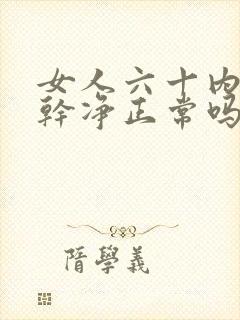 女人六十内
幹净正常吗
隋學義